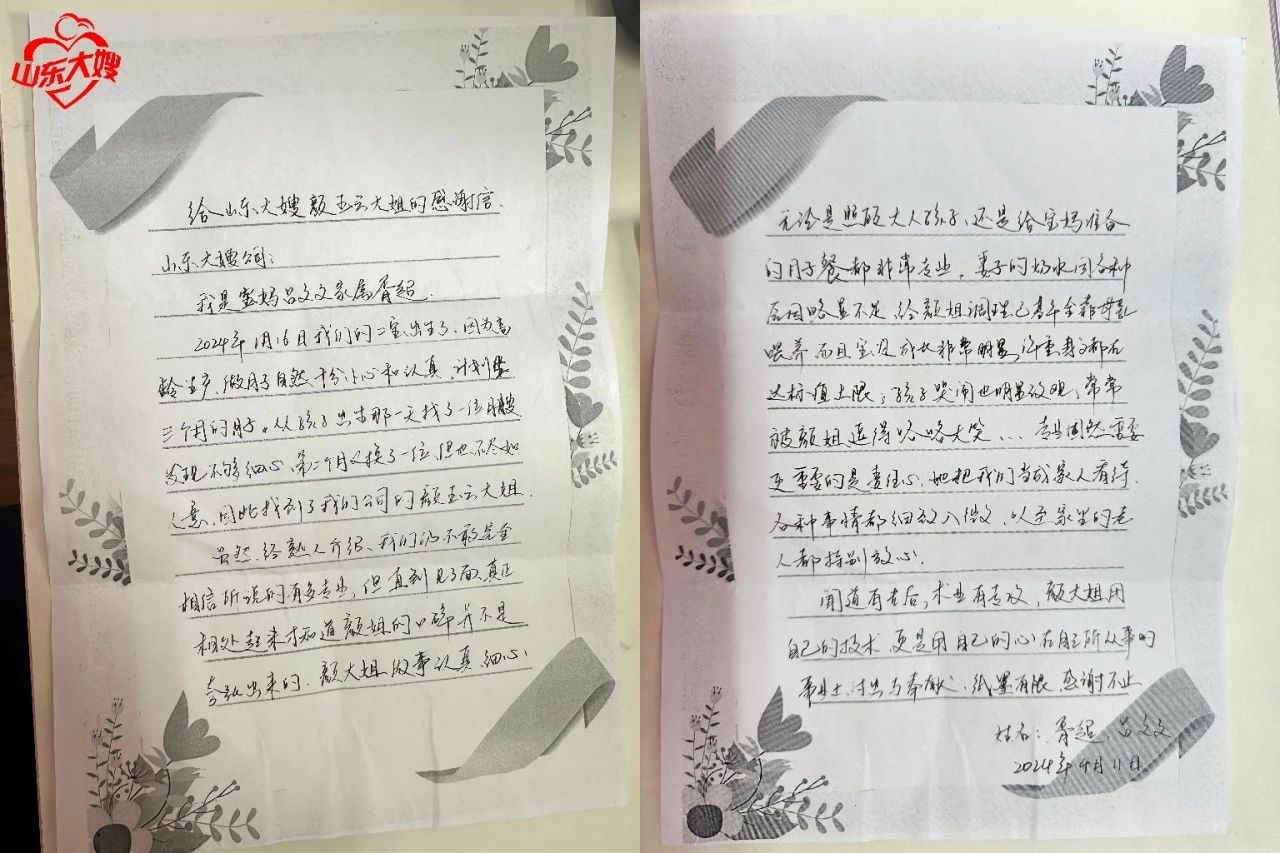 山东大嫂
给山东大嫂颜玉云大姐的感谢信.
山东大嫂公司:
我是宝妈吕文文家属胥超.
2024年1月16日我们的二宝出生了,因为高
龄生产,做月子自然十分小心和认真,计划坐
三个月的月子。从孩子出生那一天找了一位月嫂
发现不够细心,第二个月又换了一位,但也不尽如
人意,因此找到了我们的公司的颜玉云大姐.
虽然,经熟人介绍,我们仍不敢完全
相信所说的有多专业,但直到见了面,真正
相处起来才知道颜姐的口碑并不是
夸张出来的,颜大姐做事认真细心
无论是照顾大人孩子,还是给宝妈准备
的月子餐都非常专业,妻子的奶水因各种
原因略显不足,经颜姐调理已基本全靠母乳
喂养,而且宝宝成长非常明显,体重身高都在
达标值上限;孩子哭闹也明显改观,常常
被颜姐逗得哈哈大笑...专业固然需要
更重要的是责任心,她把我们当成家人看待.
各种事情都细致入微,以至家里的老
人都特别放心.
闻道有先后,术业有专攻,颜大姐用
自己的技术更是用自己的心在自己所从事的
事业上付出与奉献,纸墨有限,感谢不止
姓名:胥超,吕文文
2024年4月11日